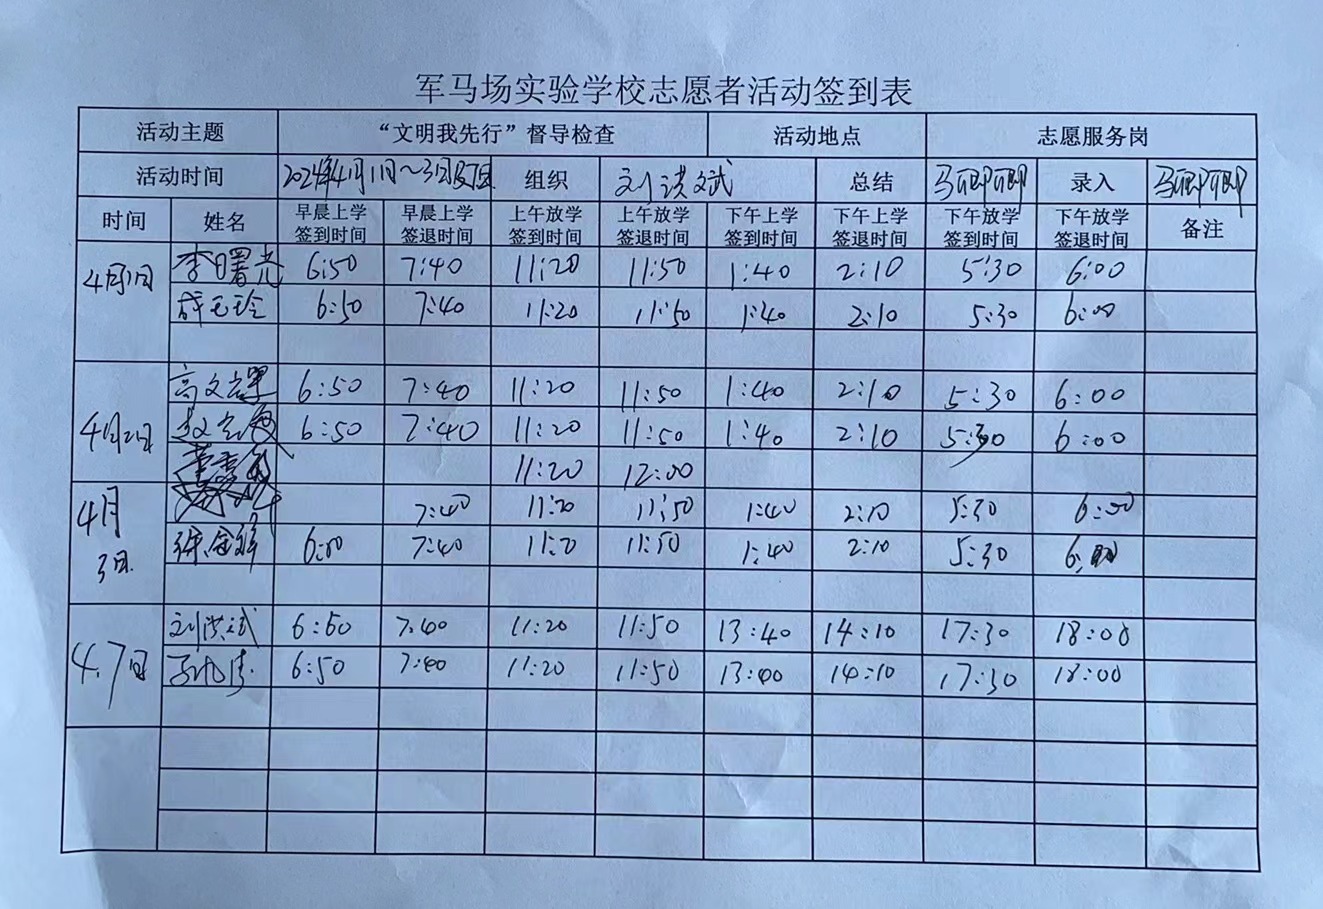 军马场实验学校志愿者活动签到表
活动主题 “文明我先行”督导检查 活动地点 志愿服务岗
活动时间 2024年4月1日～3日及7日 组织 刘洪斌 总结 录入
时间 姓名 早晨上学签到时间 早晨上学签退时间 上午放学签到时间 上午放学签退时间 下午上学签到时间 下午上学签退时间 下午放学签到时间 下午放学签退时间 备注
4月1日 李曙光 6:50 7:40 11:20 11:50 1:40 2:10 5:30 6:00
6:50 7:40 11:20 11:50 1:40 2:10 5:30 6:00
4月2日 高文 6:50 7:40 11:20 11:50 1:40 2:10 5:30 6:00
6:50 7:40 11:20 11:50 1:40 2:10 5:30 6:00
11:20 12:00
4月3日 7:40 11:20 11:50 1:40 2:10 5:30 6:00
7:40 11:50 1:40 2:10 5:30
4.7日 刘洪斌 6:50 7:40 11:20 11:50 13:40 14:10 17:30 18:00
6:50 7:40 11:20 11:50 13:40 14:10 17:30 18:00